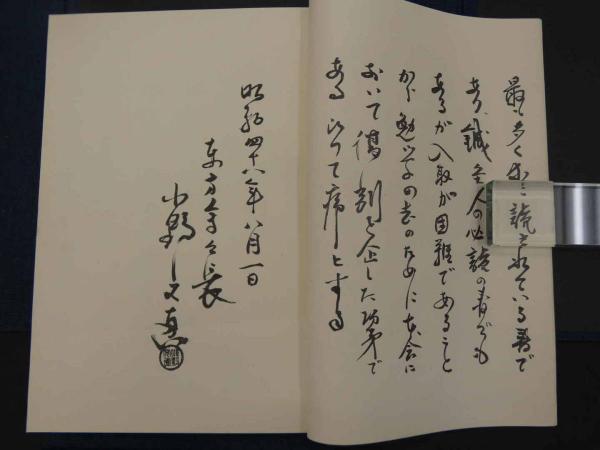 最も多く引き読されている書で
あり、鍼灸人の必読の書でも
あるが入取が困難であること
から勉学の志のために本会に
おいて復刻を企した次第で
ある 以って序とする
昭和四十八年八月一日
東方会々長
小野文惠